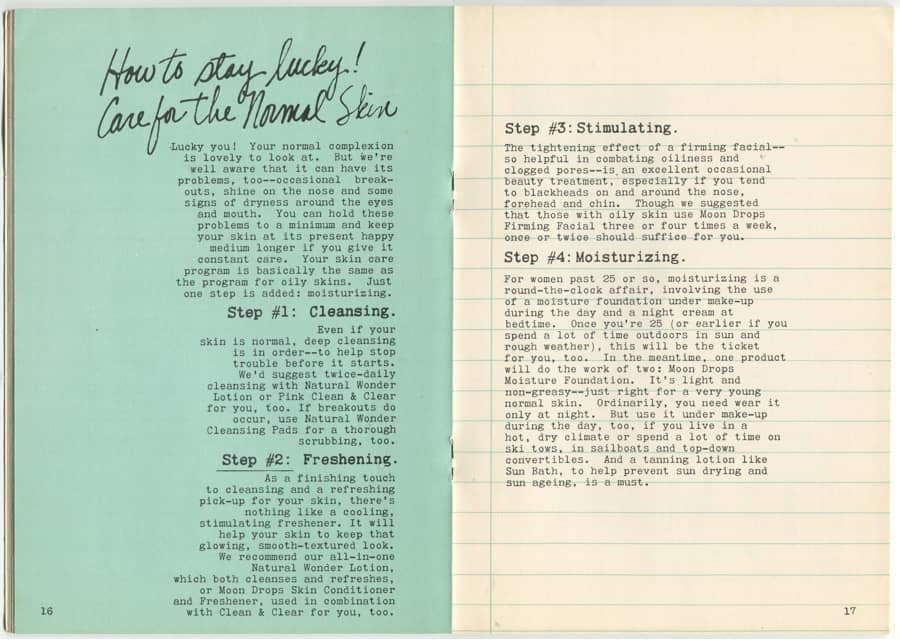 How to stay lucky!
Care for the Normal Skin
Lucky you! Your normal complexion
is lovely to look at. But we're
well aware that it can have its
problems, too--occasional break-
outs, shine on the nose and some
signs of dryness around the eyes
and mouth. You can hold these
problems to a minimum and keep
your skin at its present happy
medium longer if you give it
constant care. Your skin care
program is basically the same as
the program for oily skins. Just
one step is added: moisturizing.
Step #1: Cleansing.
Even if your
skin is normal, deep cleansing
is in order--to help stop
trouble before it starts.
We'd suggest twice-daily
cleansing with Natural Wonder
Lotion or Pink Clean & Clear
for you, too. If breakouts do
occur, use Natural Wonder
Cleansing Pads for a thorough
scrubbing, too.
Step #2: Freshening.
As a finishing touch
to cleansing and a refreshing
pick-up for your skin, there's
nothing like a cooling,
stimulating freshener. It will
help your skin to keep that
glowing, smooth-textured look.
We recommend our all-in-one
Natural Wonder Lotion,
which both cleanses and refreshes,
or Moon Drops Skin Conditioner
and Freshener, used in combination
with Clean & Clear for you, too.
16
Step #3: Stimulating.
The tightening effect of a firming facial--
so helpful in combating oiliness and
clogged pores--is an excellent occasional
beauty treatment, especially if you tend
to blackheads on and around the nose,
forehead and chin. Though we suggested
that those with oily skin use Moon Drops
Firming Facial three or four times a week,
once or twice should suffice for you.
Step #4: Moisturizing.
For women past 25 or so, moisturizing is a
round-the-clock affair, involving the use
of a moisture foundation under make-up
during the day and a night cream at
bedtime. Once you're 25 (or earlier if you
spend a lot of time outdoors in sun and
rough weather), this will be the ticket
for you, too. In the meantime, one product
will do the work of two: Moon Drops
Moisture Foundation. It's light and
non-greasy--just right for a very young
normal skin. Ordinarily, you need wear it
only at night. But use it under make-up
during the day, too, if you live in a
hot, dry climate or spend a lot of time on
ski tows, in sailboats and top-down
convertibles. And a tanning lotion like
Sun Bath, to help prevent sun drying and
sun ageing, is a must.
17